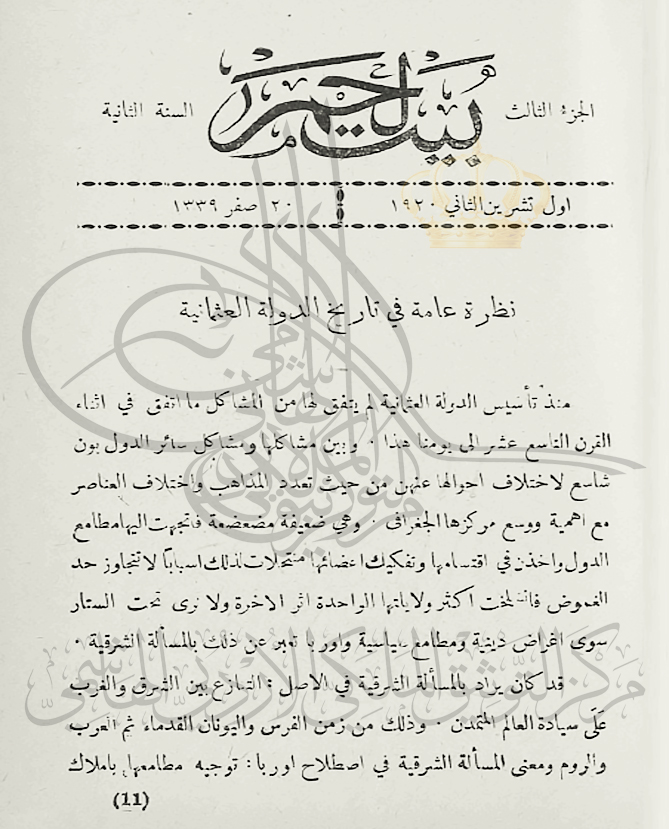 الجزء الثالث
بيت لحم
السنة الثانية
اول تشرين الثاني ١٩٢٠
٢٠ صفر ١٣٣٩
نظرة عامة في تاريخ الدولة العثمانية
منذ تأسيس الدولة العثمانية لم يتفق لها من المشاكل ما اتفق في اثناء
القرن التاسع عشر الى يومنا هذا ٠ وبين مشاكلها ومشاكل سائر الدول بون
شاسع لاختلاف احوالها عنهن من حيث تعدد المذاهب واختلاف العناصر
مع اهمية ووسع مركزها الجغرافي ٠ وهي ضعيفة مضعضعة فاتجهت اليها مطامع
الدول واخذن في اقتسامها وتفكيك اعضائها منتحلات لذلك اسباباً لا تتجاوز حد
الغموض فانسلخت اكثر ولاياتها الواحدة اثر الاخرة ولا نرى تحت الستار
سوى اغراض دينية ومطامع سياسية واوربا تعبر عن ذلك بالمسألة الشرقية ٠
قد كان يراد بالمسألة الشرقية في الاصل : التنازع بين الشرق والغرب
عَلَى سيادة العالم المتمدن ٠ وذلك من زمن الفرس واليونان القدماء ثم العرب
والروم ومعنى المسألة الشرقية في اصطلاح اوربا : توجيه مطامعها باملاك
(11)
مركز التوثيق الملكي الاردني الهاشمي